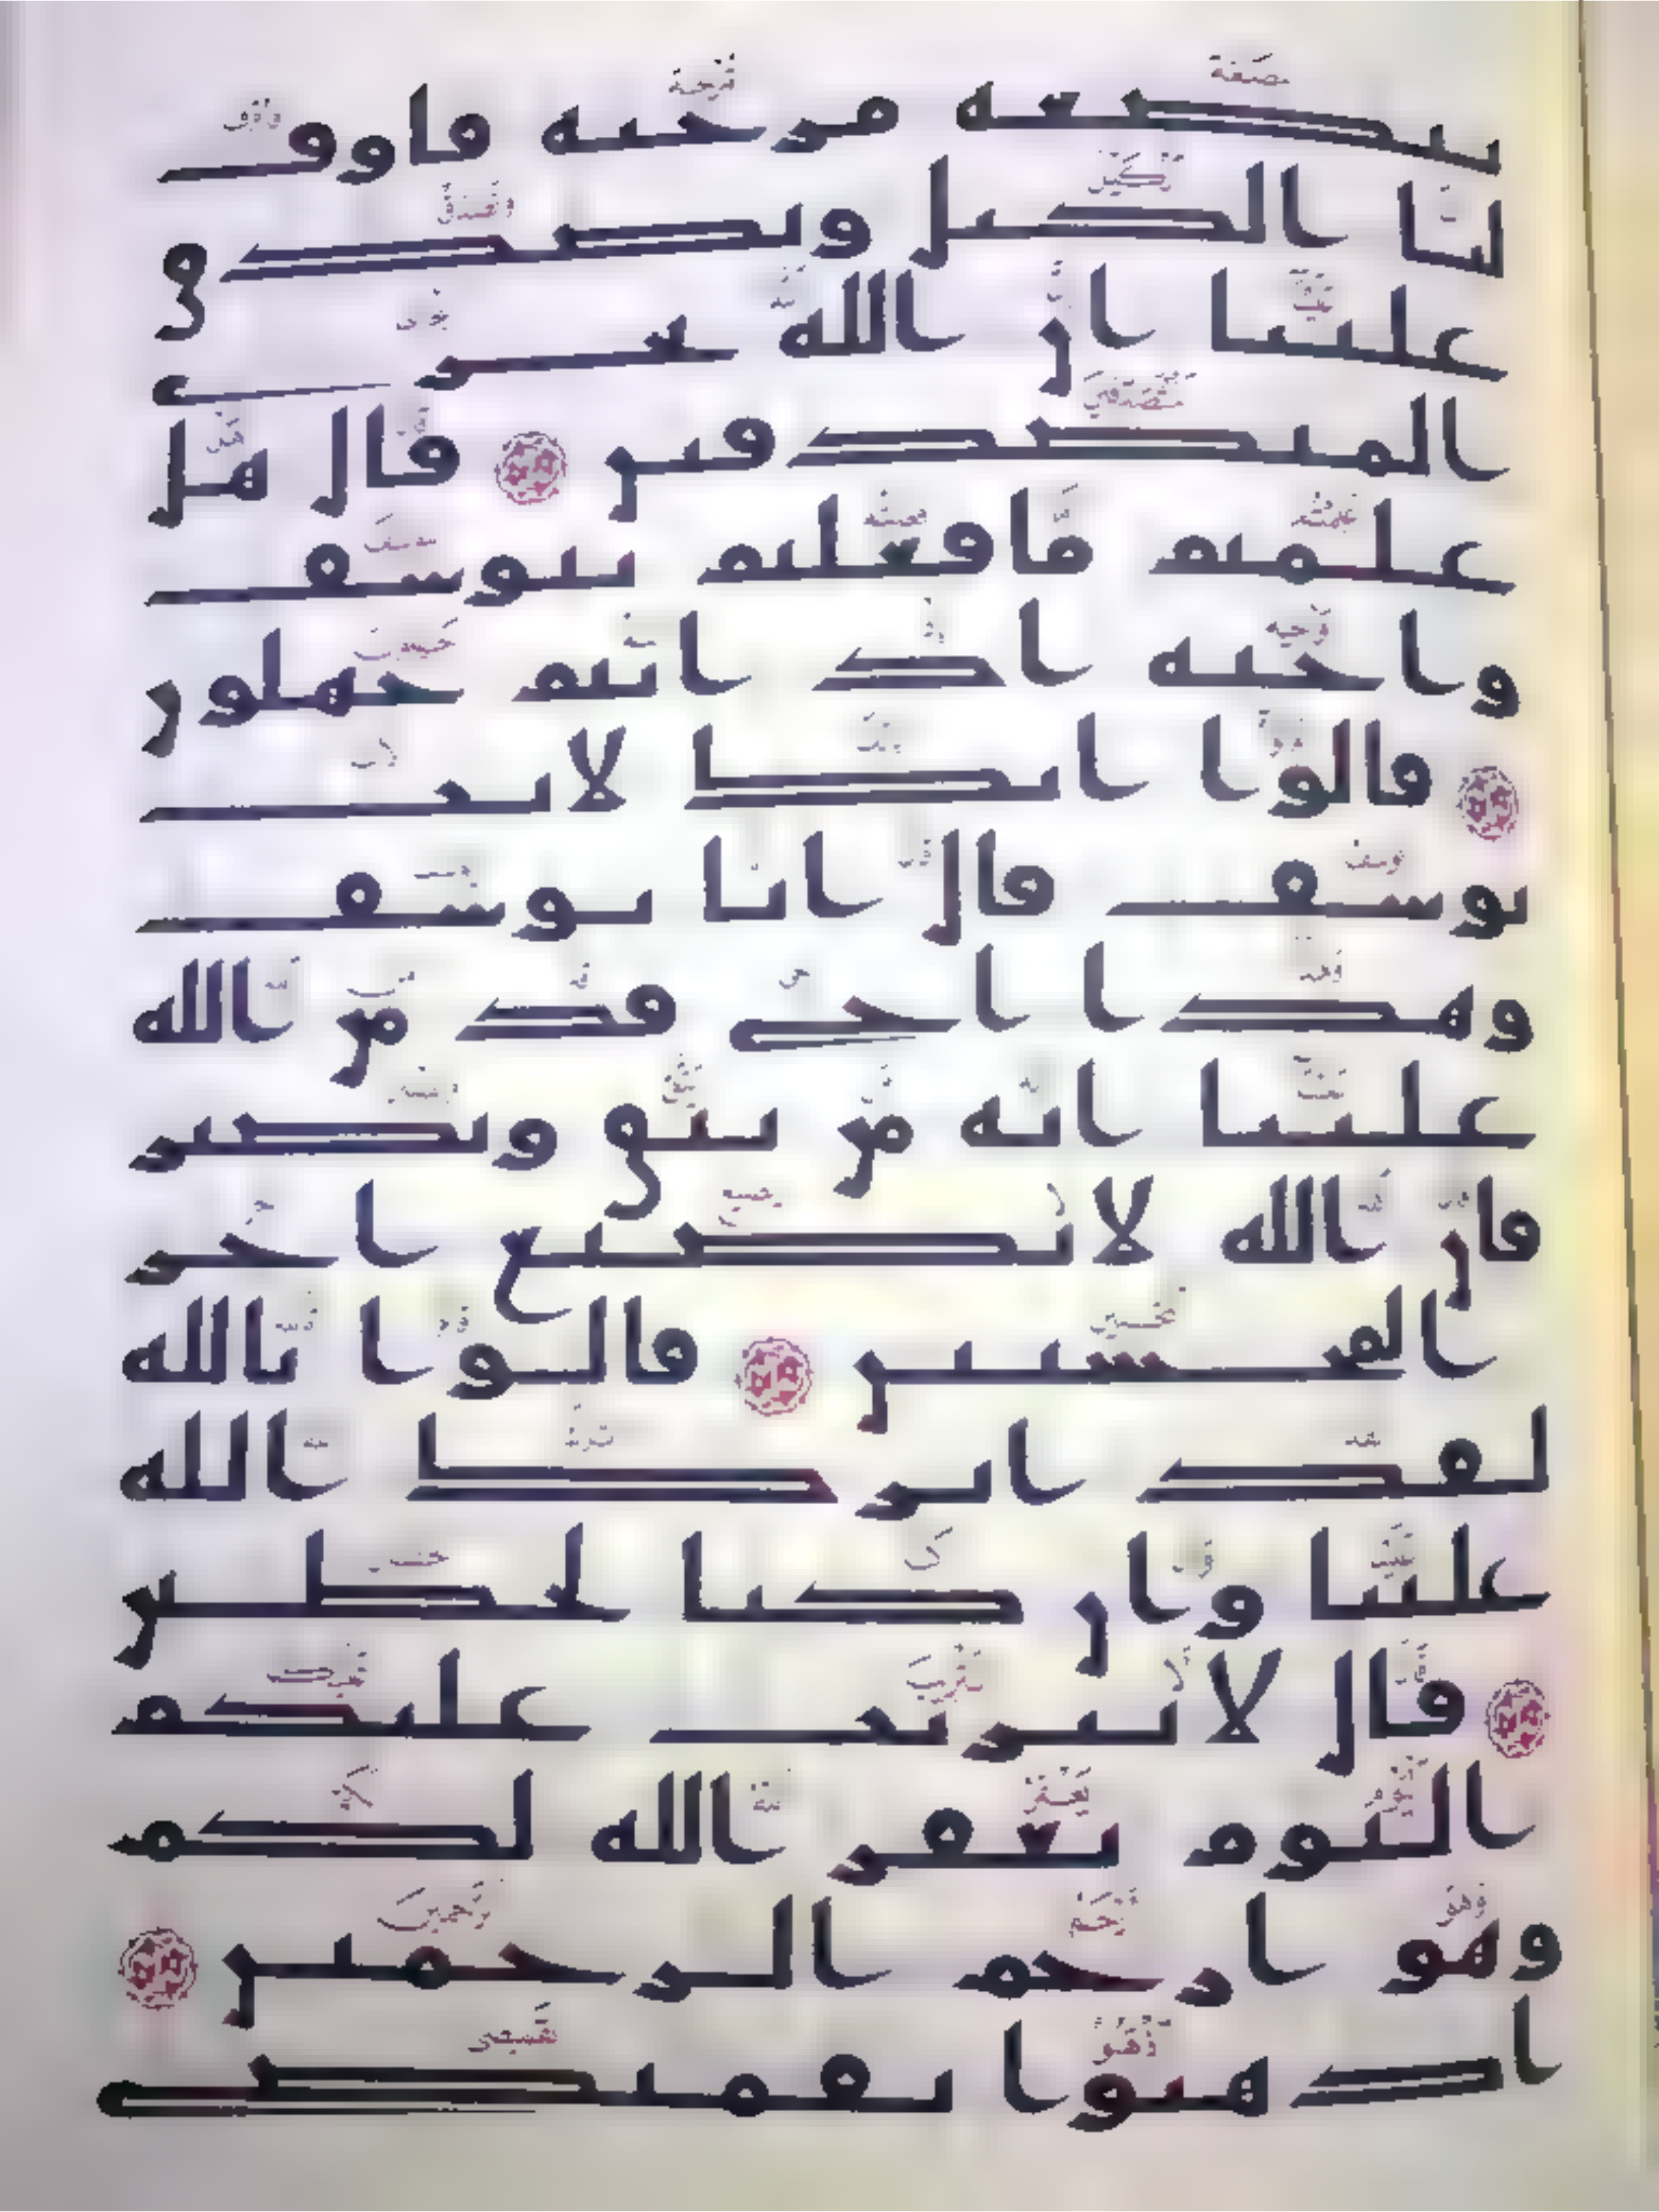 ببضعة مزجية فاوف
لنا الكيل وتصدق
علينا ان الله يجزي
المتصدقين قال هل
علمتم ما فعلتم بيوسف
واخيه اذ انتم جهلون
قالوا انك لانت
يوسف قال انا يوسف
وهذا اخي قد من الله
علينا انه من يتق ويصبر
فان الله لا يضيع اجر
المحسنين قالوا تالله
لقد اثرك الله
علينا وان كنا لخطين
قال لا تثريب عليكم
اليوم يغفر الله لكم
وهو ارحم الرحمين
اذهبوا بقميصي